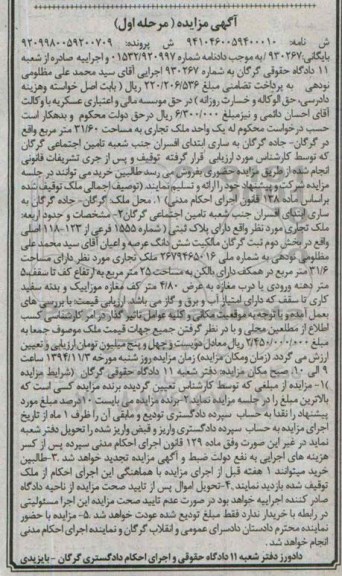 آگهی مزایده (مرحله اول)
ش نامه: ۹۴۱۰۴۶۰۰۵۹۴۰۰۰۱۰ ش پرونده: ۹۲۰۹۹۸۰۰۵۹۲۰۰۷۰۹
بایگانی: ۹۳۰۲۶۷/ به موجب دادنامه شماره ۰۱۵۳۲/۹۲۰۹۹۷ و اجراییه صادره از شعبه
۱۱ دادگاه حقوقی گرگان به شماره ۹۳۰۲۶۷ اجرایی آقای سید محمد علی مظلومی
نودهی به پرداخت تضامنی مبلغ ۲۲/۲۰۶/۵۳۶ ریال (بابت اصل خواسته وهزینه
دادرسی، حق الوکاله و خسارت روزانه) در حق موسسه مالی و اعتباری عسکریه با وکالت
آقای احسان دائمی و نیز مبلغ ۶/۳۰۰/۰۰۰ ریال در حق دولت محکوم و بدهکار است
حسب درخواست محکوم له یک واحد ملک تجاری به مساحت ۳۱/۶۰ متر مربع واقع
در گرگان- جاده گرگان به ساری ابتدای افسران جنب شعبه تامین اجتماعی گرگان
که توسط کارشناس مورد ارزیابی قرار گرفته توقیف و پس از جری تشریفات قانونی
انجام شده از طریق مزایده حضوری بفروش می رسد طالبین خرید می توانند در جلسه
مزایده شرکت و پیشنهاد خود را ارائه و تسلیم نمایند. (توصیف اجمالی ملک توقیف شده
براساس ماده ۱۳۸ قانون اجرای احکام مدنی) ۱. محل ملک: گرگان- جاده گرگان به
ساری ابتدای افسران جنب شعبه تامین اجتماعی گرگان ۲- مشخصات و حدود اربعه:
ملک تجاری مورد نظر واقع دارای پلاک ثبتی (شماره ۱۵۵۵ فرعی از ۱۲۳-۱۱۸ اصلی
واقع در بخش دوم ثبت گرگان مالکیت شش دانگ عرصه و اعیان آقای سید محمد علی
مظلومی نودهی به شماره ملی ۲۶۷۹۴۶۵۰۱۶ ملک تجاری مورد نظر دارای مساحت
۳۱/۶ متر مربع در همکف دارای بالکن به مساحت ۲۵ متر مربع به ارتفاع کف تا سقف ۵
متر دهنه ورودی یا درب مغازه به عرض ۴/۸۰ متر کف مغازه موزاییک و بدنه سفید
کاری تا سقف که دارای امتیاز آب و برق و گاز می باشد. ارزیابی قیمت: با بررسی های
بعمل آمده و با توجه به موقعیت مکانی و کلیه عوامل تاثیر گذار در امر کارشناسی کسب
اطلاع از مطلعین محلی و با در نظر گرفتن جمیع جهات قیمت ملک موصوف جمعا به
مبلغ ۲/۴۵۰/۰۰۰/۰۰۰ ریال معادل دویست و چهل و پنج میلیون تومان ارزیابی و تعیین
ارزش می گردد. (زمان ومکان مزایده) زمان مزایده روز شنبه مورخه ۱۳۹۴/۱۱/۳ ساعت
۹ الی ۱۰ صبح مکان مزایده: دفتر شعبه ۱۱ دادگاه حقوقی گرگان (شرایط مزایده
)۱- مزایده از مبلغی که توسط کارشناس تعیین گردیده برنده مزایده کسی است که
بالاترین مبلغ را در جلسه مزایده نماید ۲- برنده مزایده می بایست ۱۰ درصد مبلغ مورد
پیشنهاد را نقدا به حساب سپرده دادگستری تودیع و مابقی آن را ظرف ۱ ماه از تاریخ
اجرای مزایده به حساب سپرده دادگستری واریز و قبض واریز شده را تحویل دفتر شعبه
نماید در غیر این صورت وفق ماده ۱۲۹ قانون اجرای احکام مدنی سپرده پس از کسر
هزینه های اجرایی به نفع دولت ضبط و آگهی مزایده تجدید خواهد شد. ۳-طالبین
خرید میتوانند ۱ هفته قبل از اجرای مزایده با هماهنگی این اجرای احکام از ملک
توقیف شده بازدید نمایند. ۴-تحویل اموال پس از تایید صحت مزایده از ناحیه دادگاه
صادر کننده اجراییه خواهد بود در صورت عدم تایید صحت مزایده این اجرا مسئولیتی
در رابطه با خریدار ندارد فقط مبلغ تودیع شده عودت خواهد شد. ۵- مزایده با حضور
نماینده محترم دادستان دادسرای عمومی و انقلاب گرگان و نماینده اجرای احکام مدنی
انجام خواهد شد.
دادورز دفتر شعبه ۱۱ دادگاه حقوقی و اجرای احکام دادگستری گرگان - بایزیدی